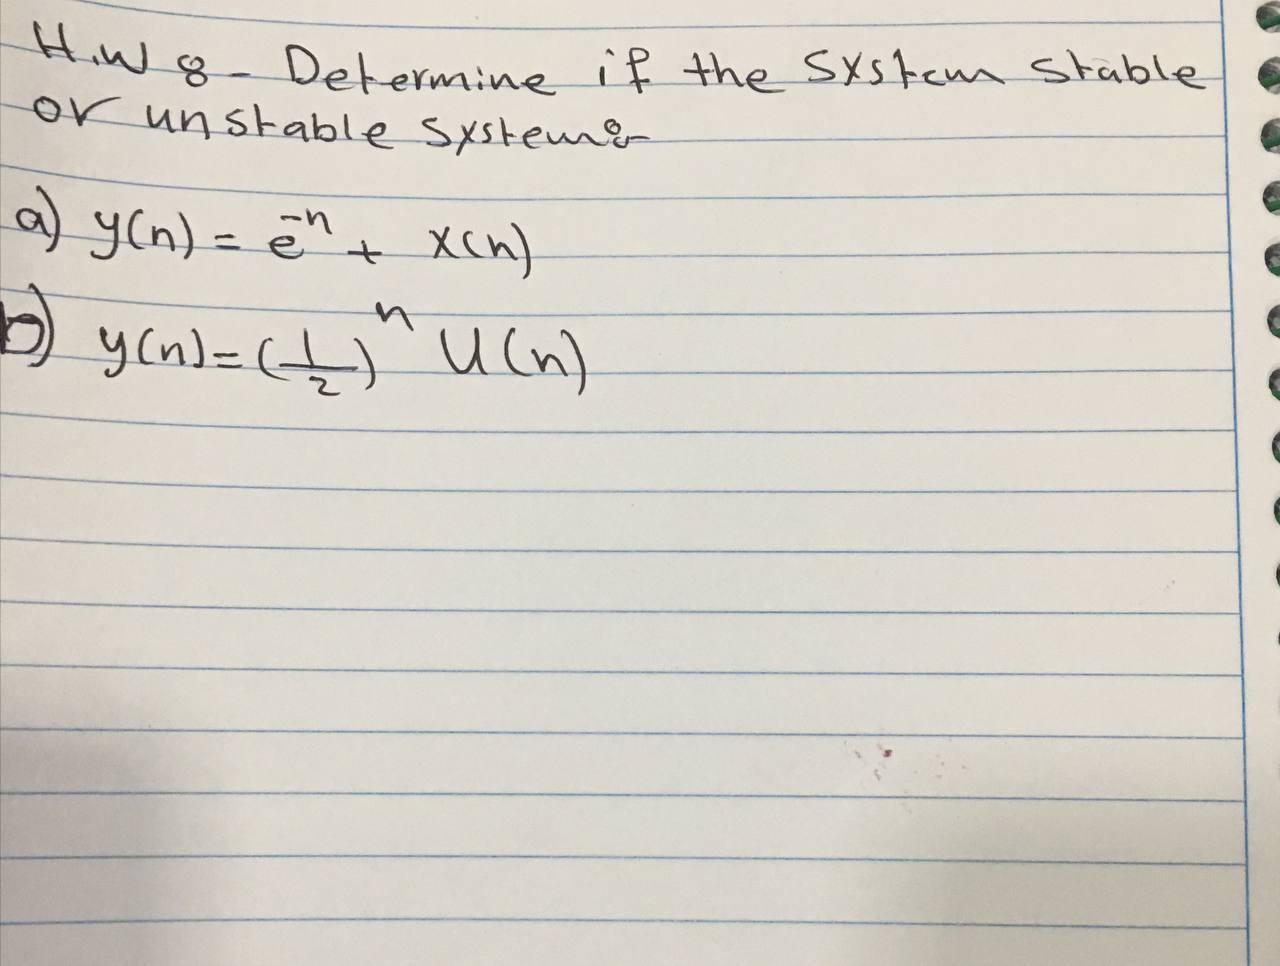 H.W 8- Determine if the Sxstem stable
or unstable Sxstem8-
a) y(n) = e^-n + x(n)
b) y(n) = (1/2)^n U(n)